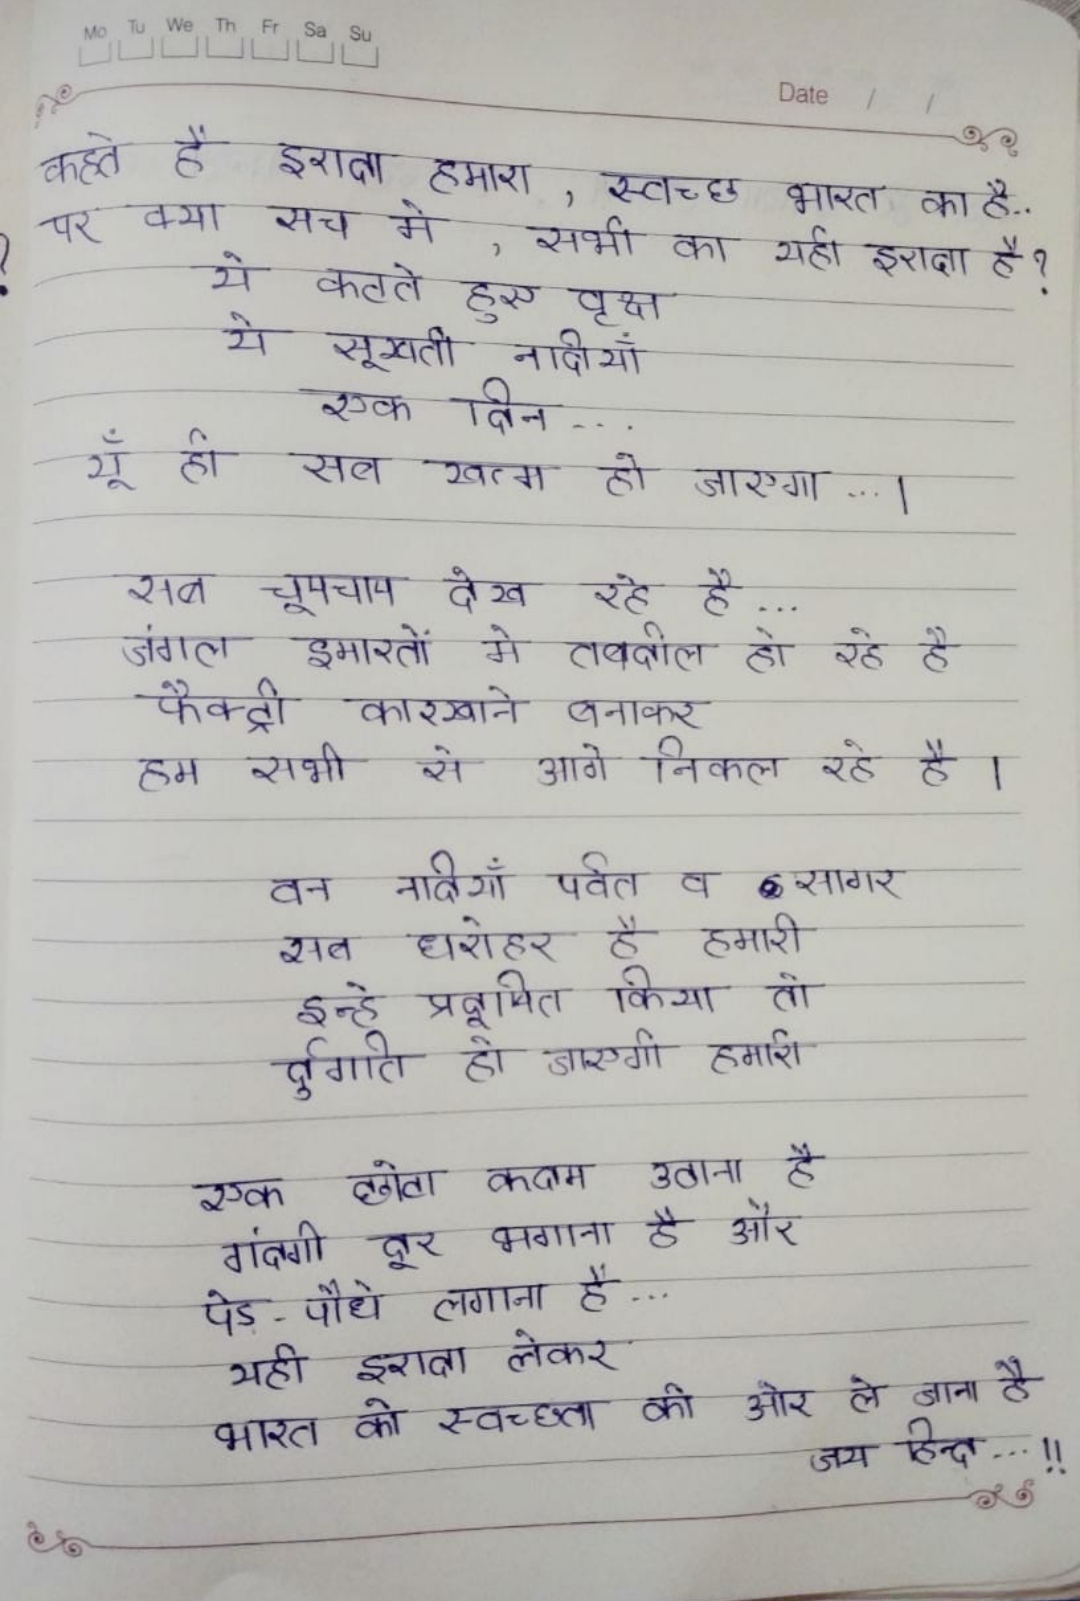 Mo Tu We Th Fr Sa Su
Date / /
कहते है इरादा हमारा , स्वच्छ भारत का है..
पर क्या सच मे , सभी का यही इरादा है ?
ये कटते हुए वृक्ष
ये सूखती नादीयाँ
एक दिन ...
यूँ ही सब खत्म हो जाएगा ... ।
सब चूपचाप देख रहे है ...
जंगल इमारतों मे तबदील हो रहे है
फैक्ट्री कारखाने बनाकर
हम सभी से आगे निकल रहे है ।
वन नादीयाँ पर्वत व सागर
सब धरोहर है हमारी
इन्हे प्रदूषित किया तो
र्दुगति हो जाएगी हमारी
एक छोटा कदम उठाना है
गंदगी दूर भगाना है और
पेड़ - पौधे लगाना है ...
यही इरादा लेकर
भारत को स्वच्छता की ओर ले जाना है
जय हिन्द ... !!